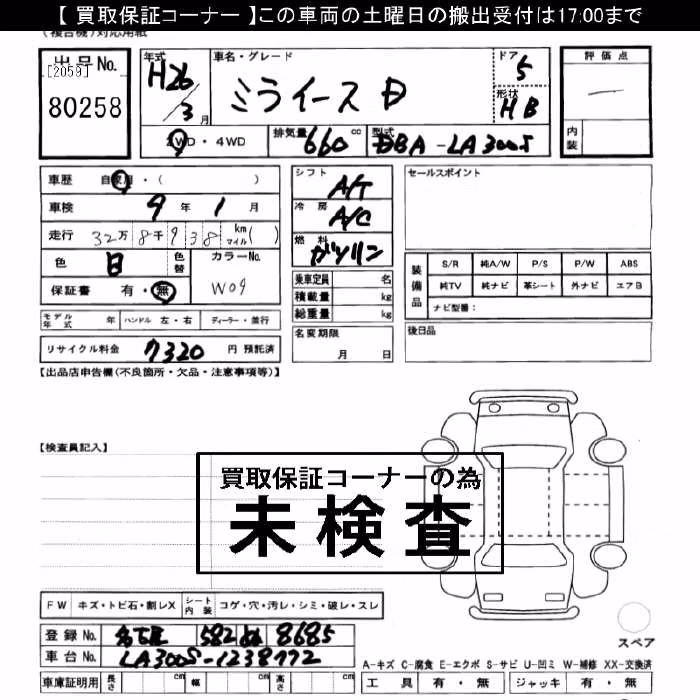 【 買取保証コーナー 】この車両の土曜日の搬出受付は17:00まで
(複合機)対応用紙
出品No.
[2059]
80258
年式 H26/3月
車名・グレード ミライース D
ドア 5
形状 HB
評価点 —
内装
2WD・4WD
排気量 660 cc
型式 DBA-LA300S
車歴 自家用・( )
車検 9年 1月
走行 32万 8千 9 3 8 km マイル( )
色 白 色替
カラーNo. W09
保証書 有・無
シフト A/T
冷房 A/C
燃料 ガソリン
乗車定員 名
積載量 kg
総重量 kg
セールスポイント
装備品
S/R 純A/W P/S P/W ABS
純TV 純ナビ 革シート 外ナビ エアB
ナビ型番：
モデル年式 年 ハンドル 左・右 ディーラー・並行
名変期限 月 日
後日品
リサイクル料金 7320 円 預託済
【出品店申告欄(不良箇所・欠品・注意事項等)】
【検査員記入】
買取保証コーナーの為
未検査
FW キズ・トビ石・割レX シート内装 コゲ・穴・汚レ・シミ・破レ・スレ
スペア
登録No. 名古屋 582 8685
車台No. LA300S-1238772
A-キズ C-腐食 E-エクボ S-サビ U-凹ミ W-補修 XX-交換済
車庫証明用 長さ cm 幅 cm 高さ cm
工具 有・無 ジャッキ 有・無